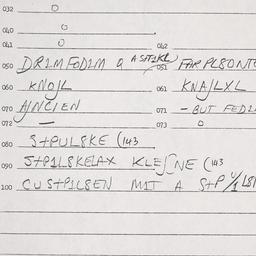 032 O
040 O
041 O 042
050 DR1M FOD1M a A SAT2KL 051 FAR PL80NT
060 KNOJL 061 KNAJLXL
070 AJNCIEN 071 - BUT FED1
072 — 073 O
080 S+PULSKE (143
090 S+P1L8KELAX KLEJNE (143
100 CUS+P1L8EN MIT A S+P